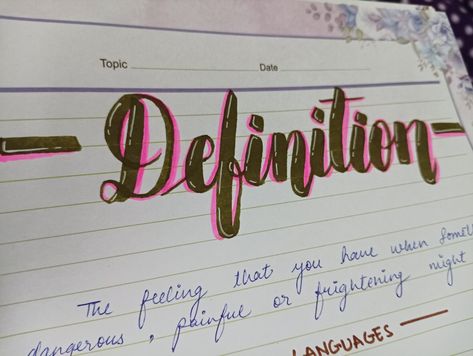 Topic Date
Definition
The feeling that you have when
dangerous, painful or frightening might
LANGUAGES